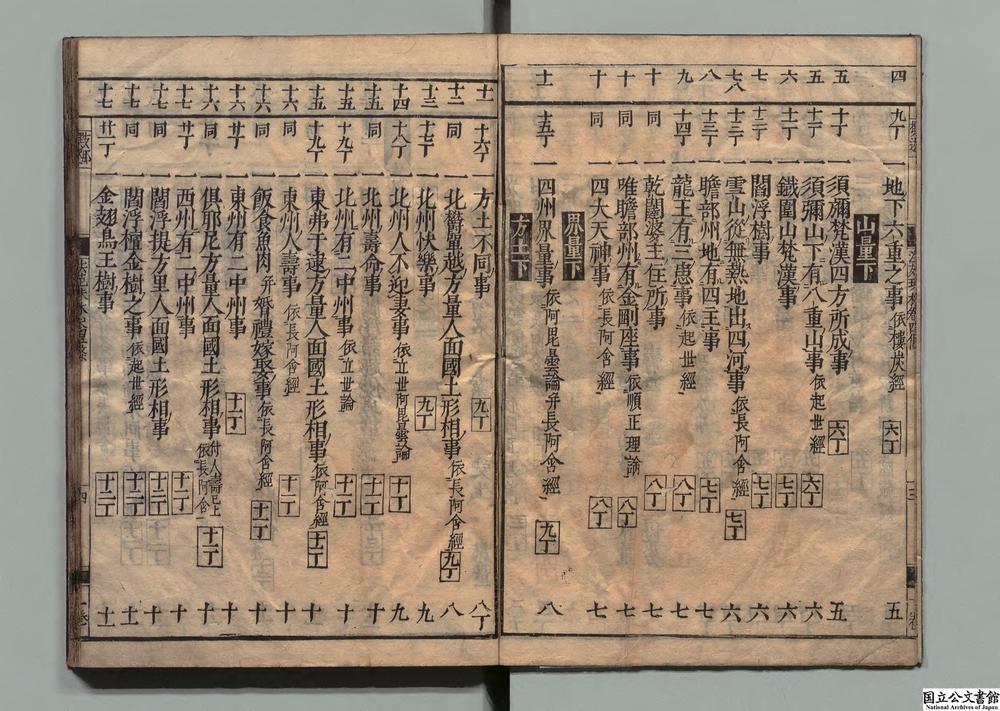 四 九丁 一地下六重之事 依樓炭經 六丁 五
山量下
五 十丁 一須彌梵漢四方所成事 六丁 五
五 十二丁 一須彌山下有八重山事 依起世經 六丁 六
六 十二丁 一鐵圍山梵漢事 七丁 六
七 十二丁 一閻浮樹事 七丁 六
七八 十三丁 一雪山從無熱地出四河事 依長阿含經 七丁 六
八 十三丁 一瞻部州地有四主事 七丁 七
九 十四丁 一龍王有三患事 依起世經 八丁 七
十 同 一乾闥婆王住所事 八丁 七
十 同 一唯瞻部州有金剛座事 依順正理論 八丁 七
十 同 一四大天神事 依長阿含經 八丁 七
界量下
十一 十五丁 一四州界量事 依阿毘曇論并長阿含經 九丁 八
方土下
十一 十六丁 一方土不同事 九丁 八丁
十二 同 一北欝單越方量人面國土形相事 依長阿含經 九丁 八
十三 十七丁 一北州快樂事 九丁 九
十四 十八丁 一北州人不迎妻事 依立世阿毘曇論 十丁 九
十五 同 一北州壽命事 十一丁 十
十五 十九丁 一北州有二中州事 依立世論 十一丁 十
十五 十九丁 一東弗于逮方量人面國土形相事 依長阿含經 十一丁 十
十六 同 一東州人壽事 依長阿含經 十一丁 十
十六 同 一飯食魚肉并婚禮嫁娶事 依長阿含經 十一丁 十
十六 廿丁 一東州有二中州事 十一丁 十
十六 同 一俱耶尼方量人面國土形相事 付人壽 依長阿含 十一丁 十
十七 廿丁 一西州有二中州事 十一丁 十
十七 同 一閻浮提方里人面國土形相事 十二丁 十
十七 同 一閻浮檀金樹之事 依起世經 十二丁 十
十七 廿一丁 一金翅鳥王樹事 十二丁 十一
四
国立公文書館
National Archives of Japan